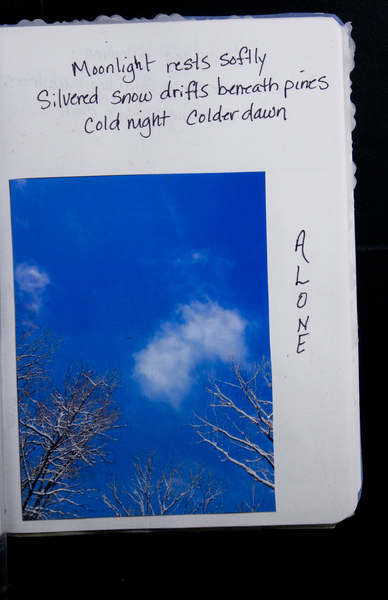 Moonlight rests softly
Silvered snow drifts beneath pines
Cold night Colder dawn
ALONE